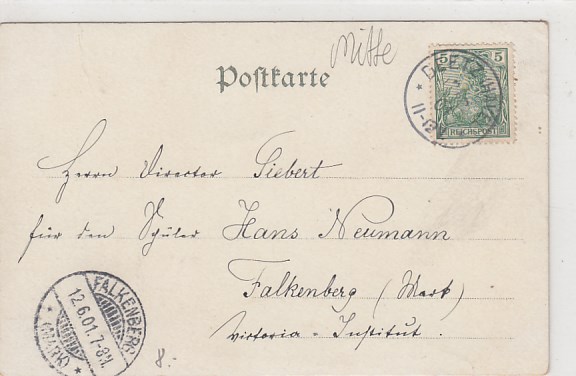 Mitte
Postkarte
5 5
REICHSPOST
DEETZ
11-12V
Herrn Director Siebert
für den Schüler Hans Neumann
Falkenberg (Mark)
Victoria-Institut.
FALKENBERG
12.6.01.7-8V.
(MARK)
8.-